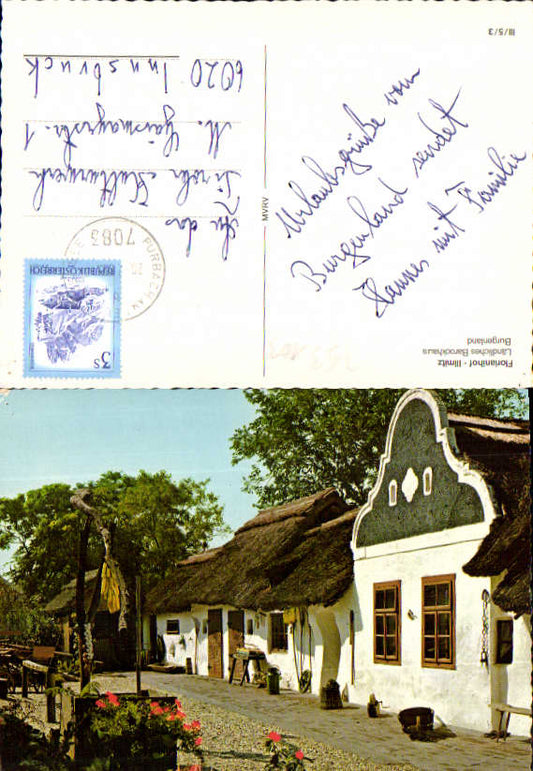 Florianihof - Illmitz
Ländliches Barockhaus
Burgenland
Urlaubsgrüße vom
Burgenland sendet
Hannes mit Familie
MVRV
REPUBLIK ÖSTERREICH
3 S
7083
PURBACH
An das
Tiroler Kulturwerk
M. Gaismayrstr. 1
6020 Innsbruck
III/5/3